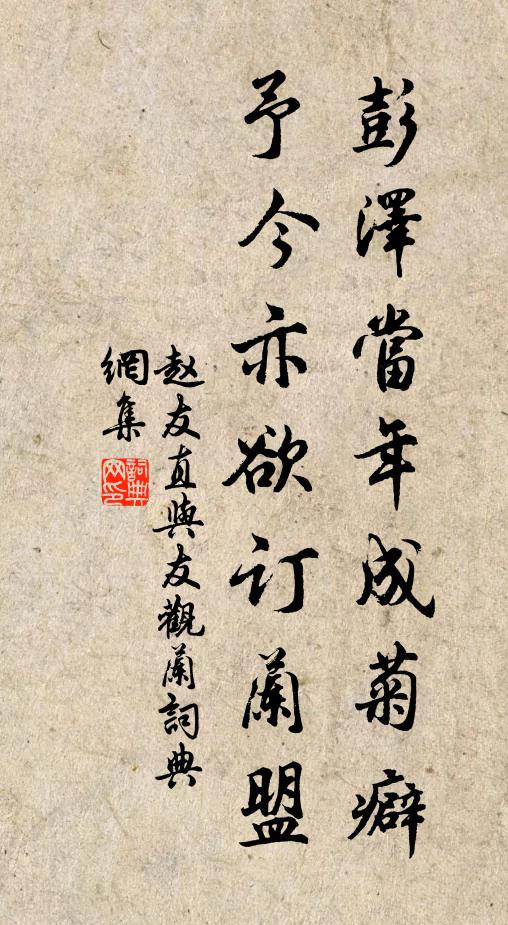 彭澤當年成菊癖
予今亦欲订蘭盟
赵友直與友觀蘭詞典
網集
詞典網印